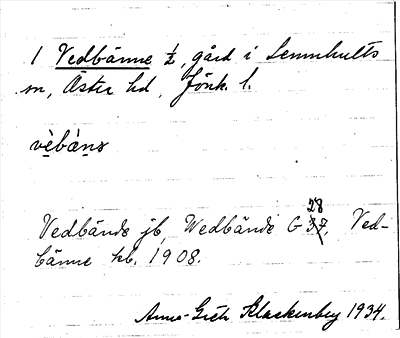 1 Vedbänne ½, gård i Lemnhults
sn, Östra hd, Jönk. l.
vèbàns
28
Vedbände jb, Wedbände G 37, Ved-
bänne kb. 1908.
Anna-Greta Klackenberg 1934.